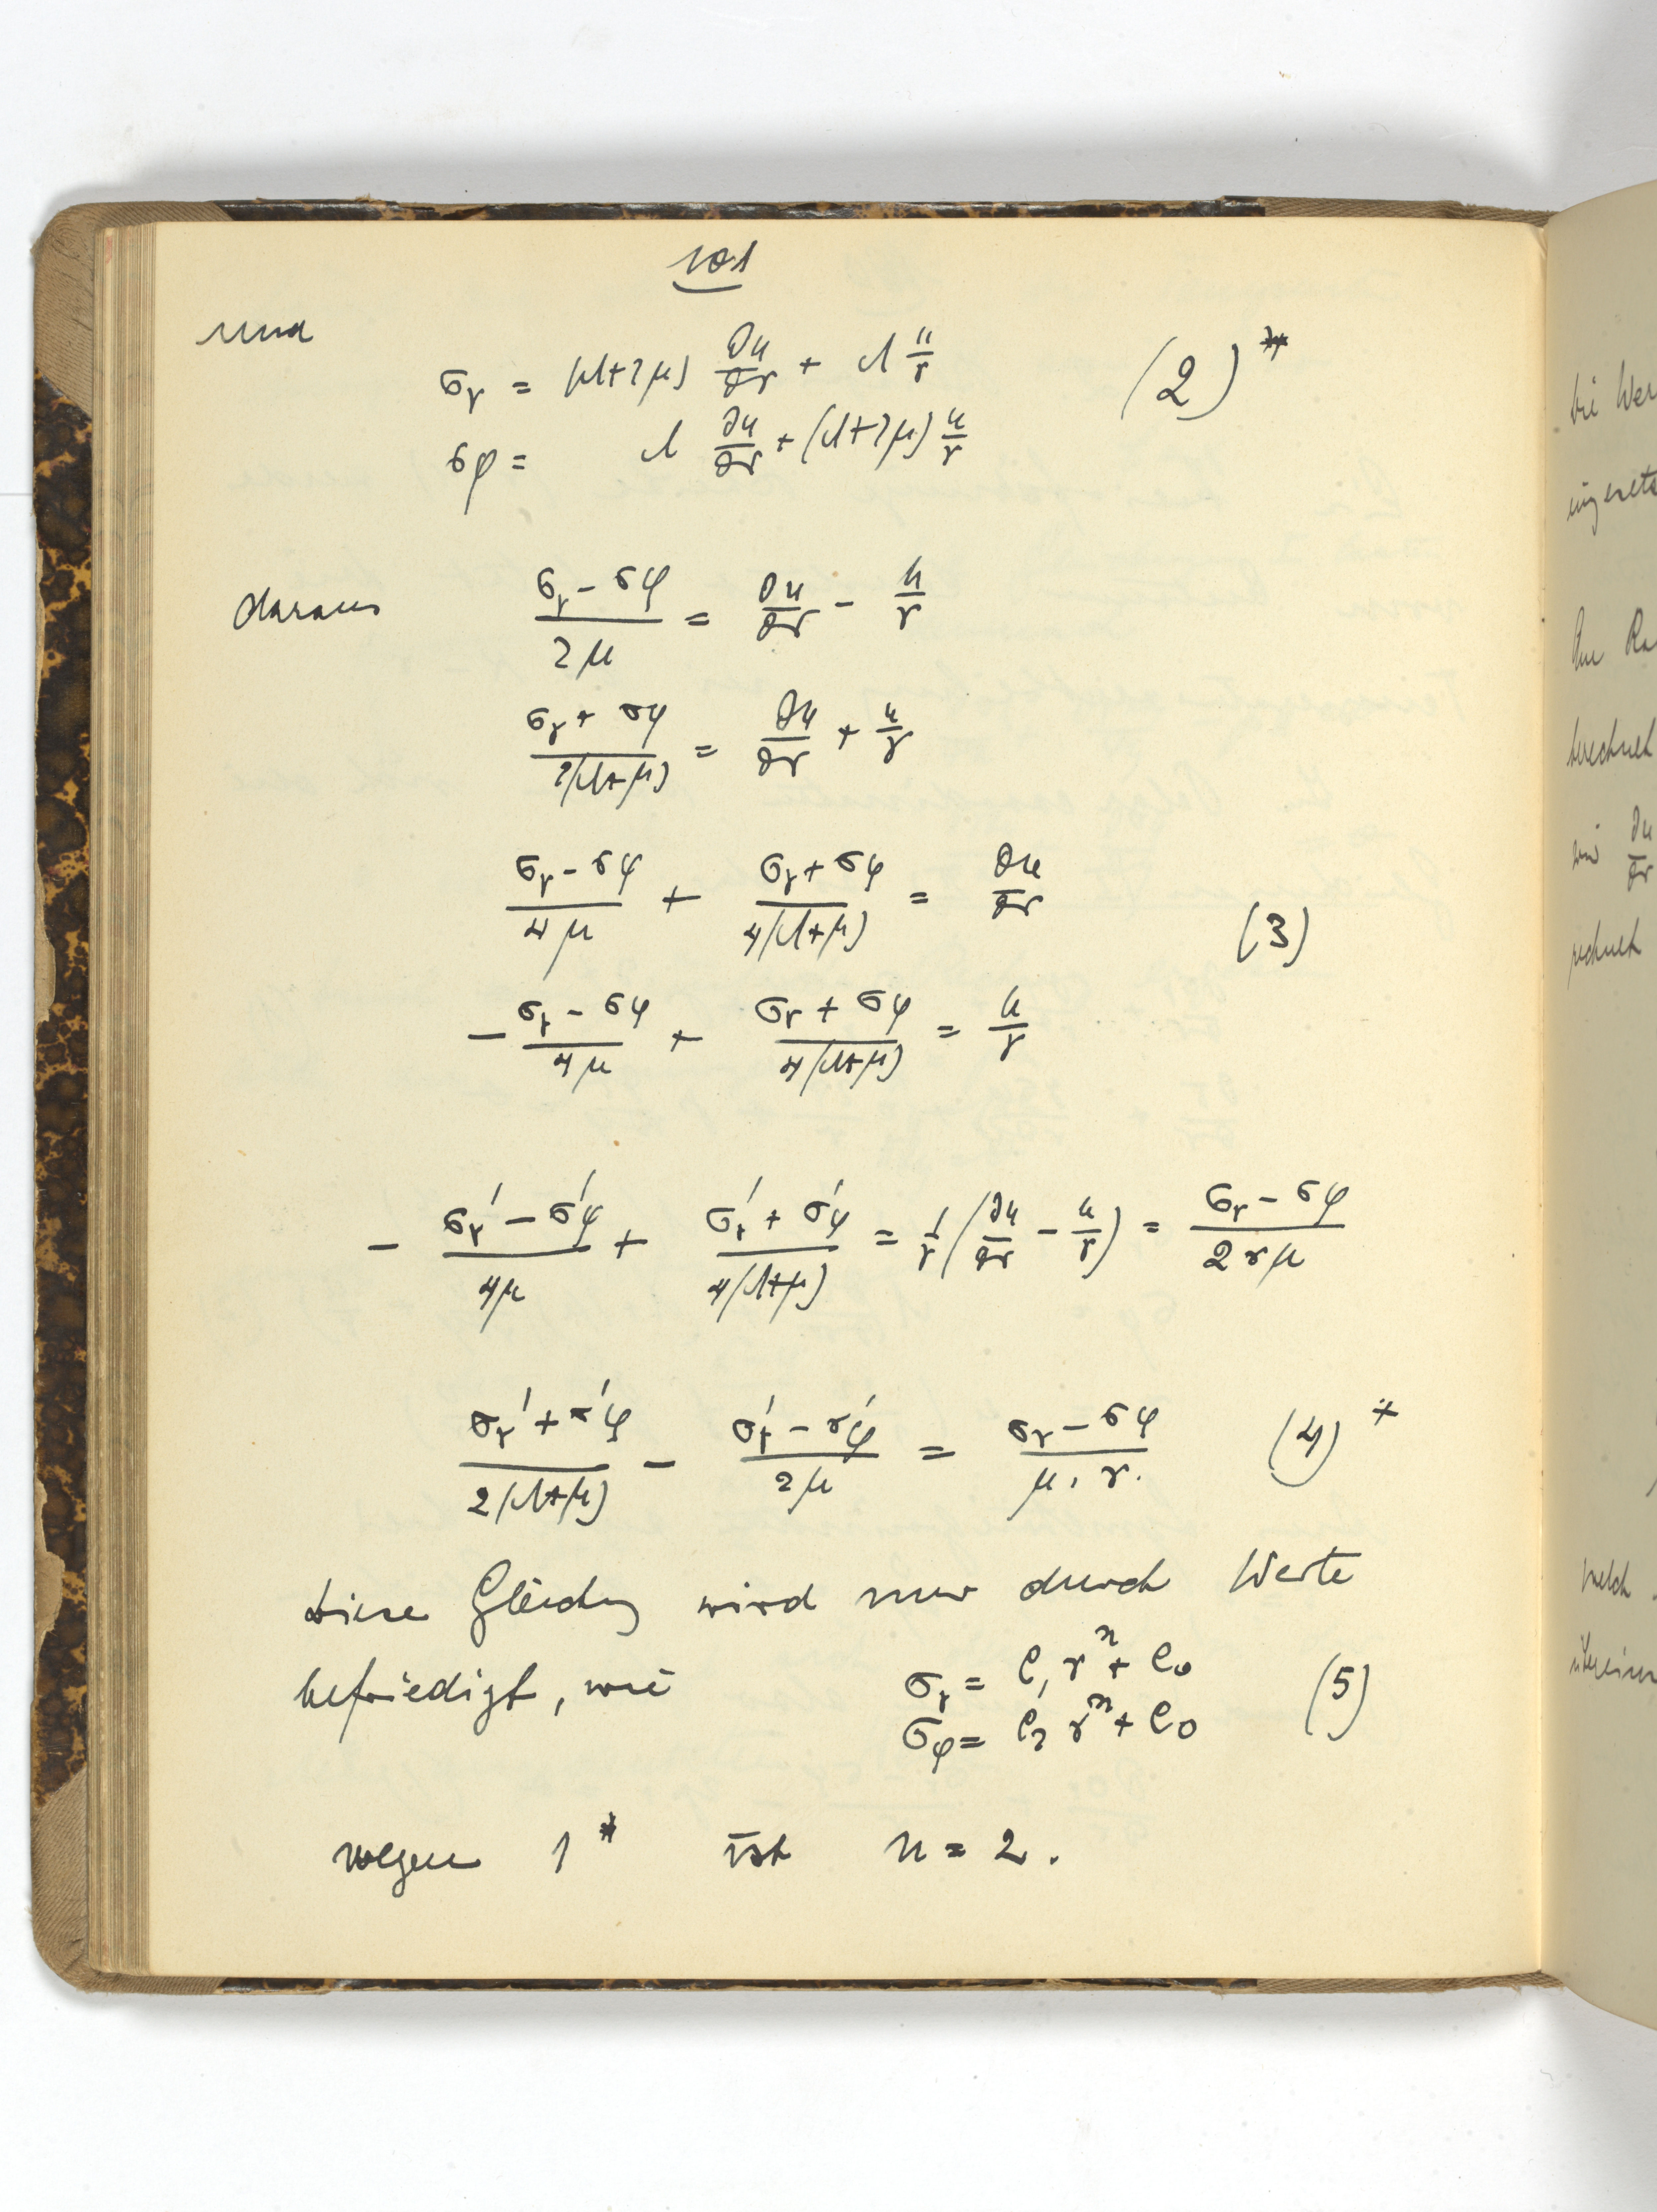 101
und
σr = (λ+2μ) ∂u/∂r + λ u/r (2)*
σφ = λ ∂u/∂r + (λ+2μ) u/r
daraus (σr - σφ)/2μ = ∂u/∂r - u/r
(σr + σφ)/2(λ+μ) = ∂u/∂r + u/r
(σr - σφ)/4μ + (σr + σφ)/4(λ+μ) = ∂u/∂r
(3)
- (σr - σφ)/4μ + (σr + σφ)/4(λ+μ) = u/r
- (σr' - σ'φ)/4μ + (σr' + σ'φ)/4(λ+μ) = 1/r (∂u/∂r - u/r) = (σr - σφ)/2rμ
(σr' + σ'φ)/2(λ+μ) - (σr' - σ'φ)/2μ = (σr - σφ)/μ.r. (4)*
diese Gleichung wird nur durch Werte
befriedigt, wie σr = C1 r^n + C0 (5)
σφ = C2 r^n + C0
wegen 1* ist n = 2.
die Wer
eingesetz
Ra
berechnet
wir ∂u/∂r
rechnet
welch
überein